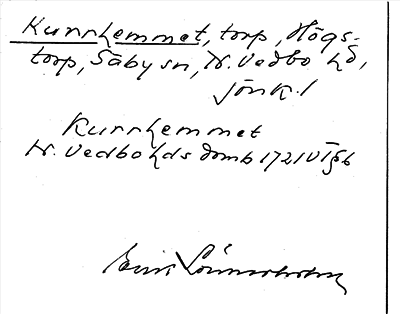 Kurrhemmet, torp, Högs-
torp, Säby sn, N. Vedbo hd,
Jönk. l
Kurrhemmet
N. Vedbo hds domb 1721 VT § 6